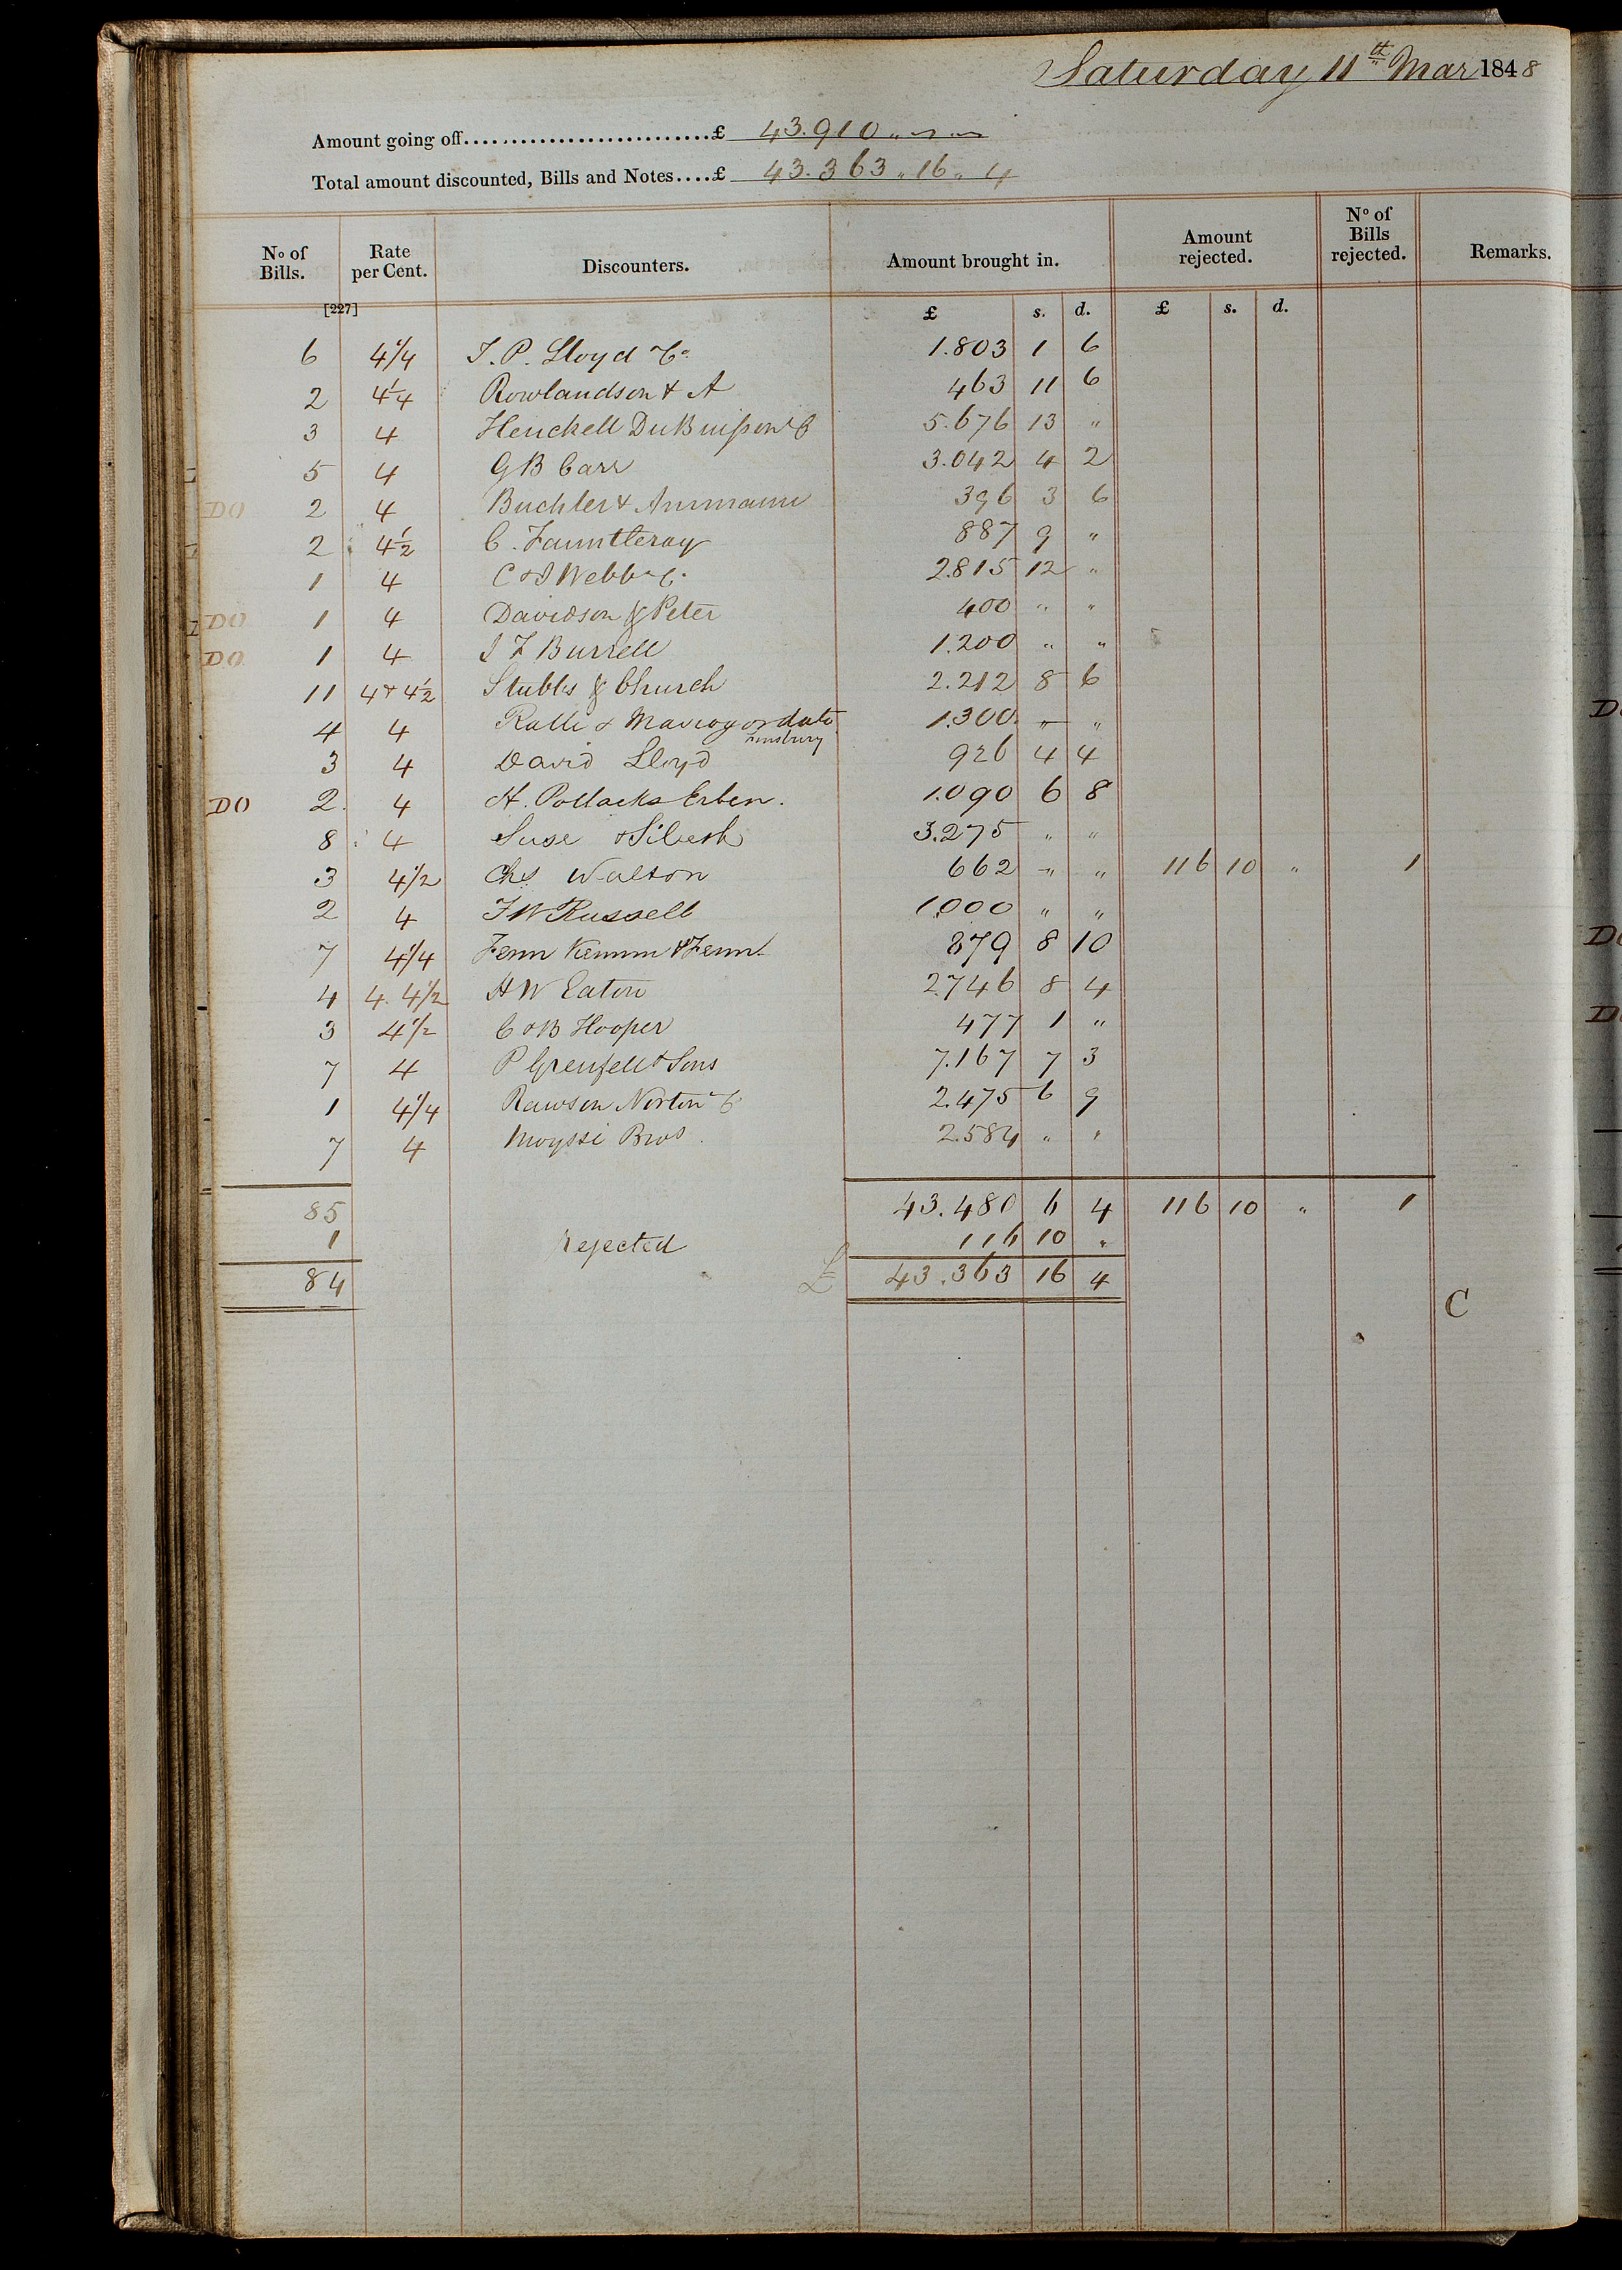 Saturday 11th Mar 1848
Amount going off..........................£ 43.910 " ~ " ~
Total amount discounted, Bills and Notes....£ 43.363 " 16 " 4
No of Bills. Rate per Cent. Discounters. Amount brought in. Amount rejected. No of Bills rejected. Remarks.
[227] £ s. d. £ s. d.
6 4 1/4 J. P. Lloyd & Co 1.803 1 6
2 4 1/4 Rowlandson & A 463 11 6
3 4 Henckell DuBuisson & C 5.676 13 "
5 4 G B Carr 3.042 4 2
DO 2 4 Buchler & Ammann 396 3 6
2 4 1/2 C. Fauntleroy 887 9 "
1 4 C & J Webb & C. 2.815 12 "
DO 1 4 Davidson & Peter 400 " "
DO 1 4 J F Burrell 1.200 " "
11 4 & 4 1/2 Stubbs & Church 2.212 8 6
4 4 Ralli & Mavrogordato 1.300 " "
3 4 David Lloyd 926 4 4
DO 2 4 H. Pollacks Erben. 1.090 6 8
8 4 Suse & Sibeth 3.275 " "
3 4 1/2 Chs Walton 662 " " 116 10 " 1
2 4 J W Russell 1.000 " "
7 4 1/4 Fenn Kemm & Fenn 879 8 10
4 4. 4 1/2 H W Eaton 2.746 8 4
3 4 1/2 C & B Hooper 477 1 "
7 4 P Grenfell & Sons 7.167 7 3
1 4 1/4 Rawson Norton & C 2.475 6 9
7 4 Moyssi Bros. 2.584 " "
85 43.480 6 4 116 10 " 1
1 rejected 116 10 "
84 £ 43.363 16 4
C